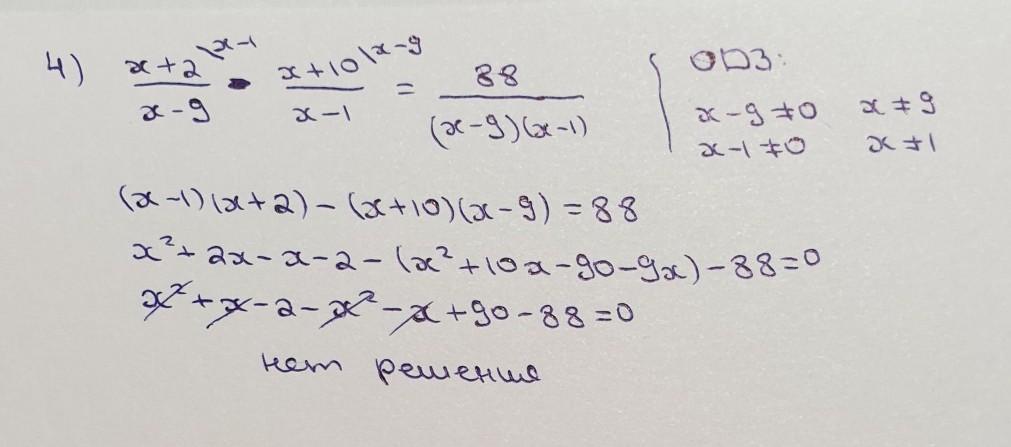 4) (x+2)/(x-9) \x-1 - (x+10)/(x-1) \x-9 = 88/((x-9)(x-1))
{ ОДЗ:
x-9≠0 x≠9
x-1≠0 x≠1
(x-1)(x+2)-(x+10)(x-9)=88
x²+2x-x-2-(x²+10x-90-9x)-88=0
x²+x-2-x²-x+90-88=0
нет решения